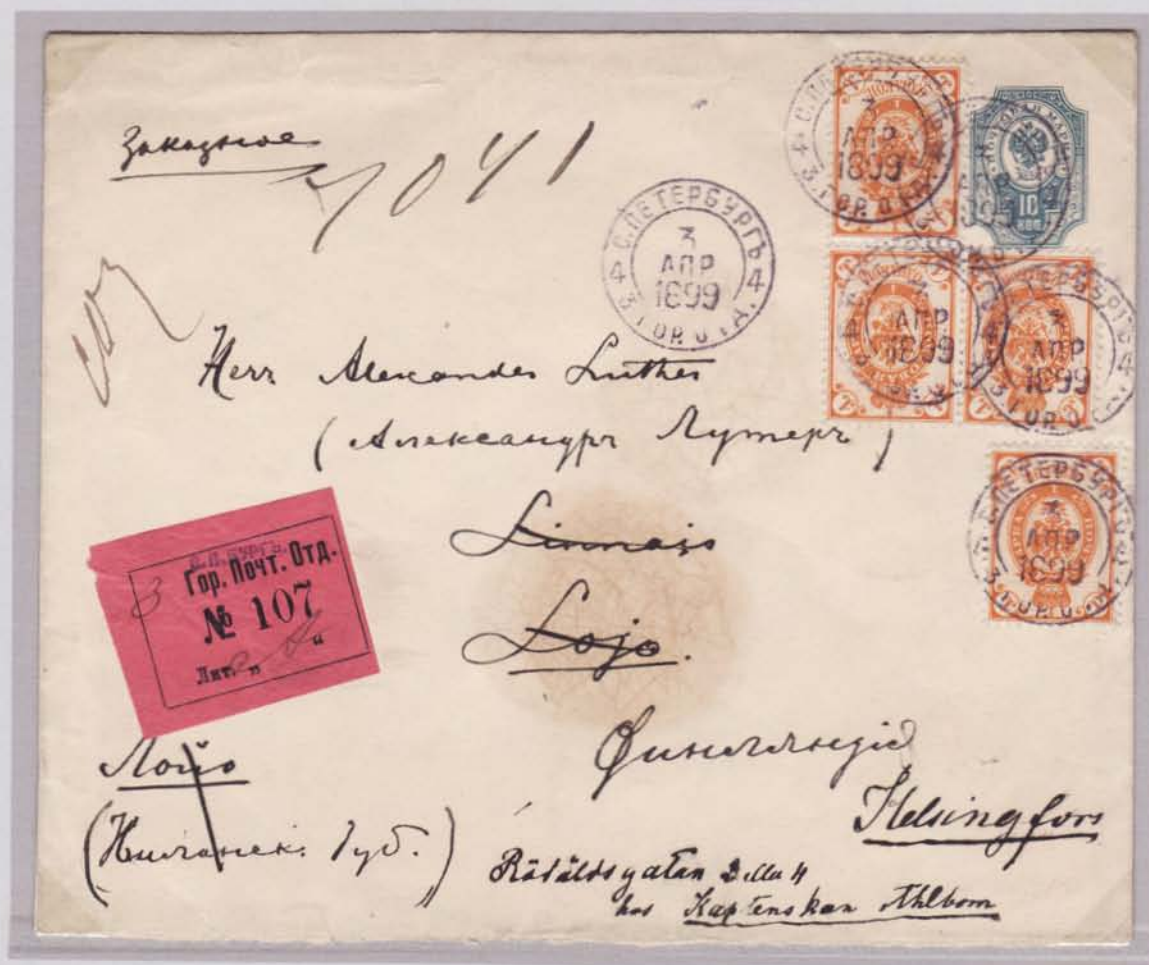 Заказное
7041
С.ПЕТЕРБУРГЪ
3
АПР
1899
4 3.ГОР. О Т Д. 4
3
АПР
1899
10
КОП
3
АПР
1899
3
АПР
1899
С.ПЕТЕРБУРГЪ
3
АПР
1899
Herr Alexander Luther
(Александръ Лутеръ)
Linnais
Lojo.
С.П.БУРГЪ.
Гор. Почт. Отд.
№ 107
Лит. „ “
Финляндія
Helsingfors
Лойо
(Нюланск. Губ.)
hos Kaptenskan Ahlbom